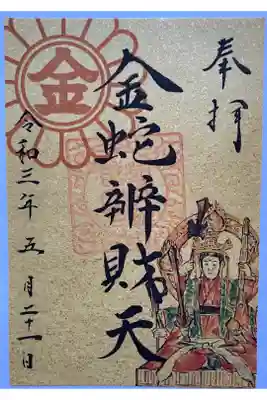 奉拝
金
金蛇辨財天
令和三年五月二十一日